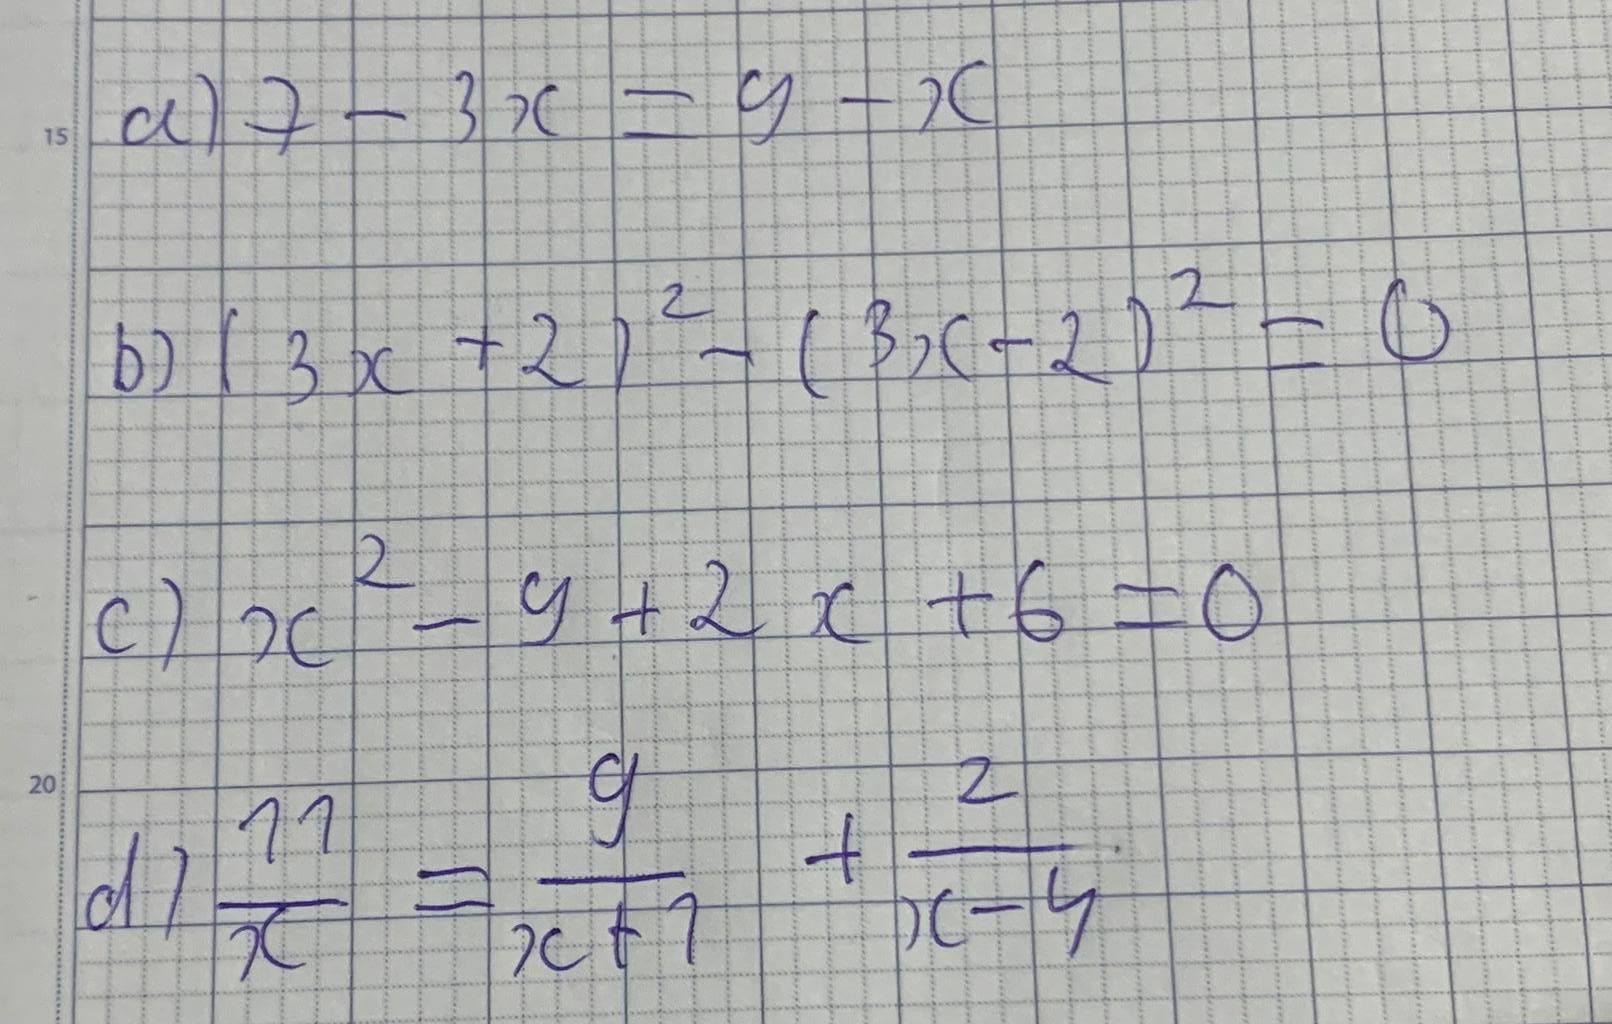 15 a) 7 - 3x = 9 - x
b) (3x + 2)² - (3x - 2)² = 0
c) x² - 9 + 2x + 6 = 0
20
d) 11/x = 9/(x+1) + 2/(x-4)